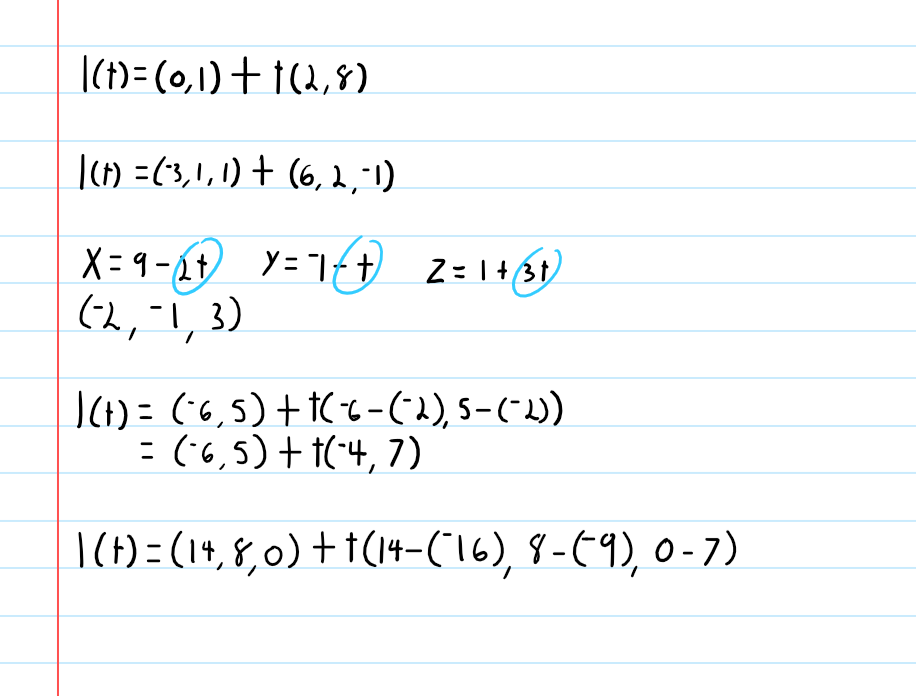 l(t)=(0,1)+t(2,8)
l(t)=(⁻3,1,1)+(6,2,⁻1)
X=9-2t y=⁻1-t z=1+3t
(⁻2,⁻1,3)
l(t)=(⁻6,5)+t(⁻6-(⁻2),5-(⁻2))
=(⁻6,5)+t(⁻4,7)
l(t)=(14,8,0)+t(14-(⁻16),8-(⁻9),0-7)